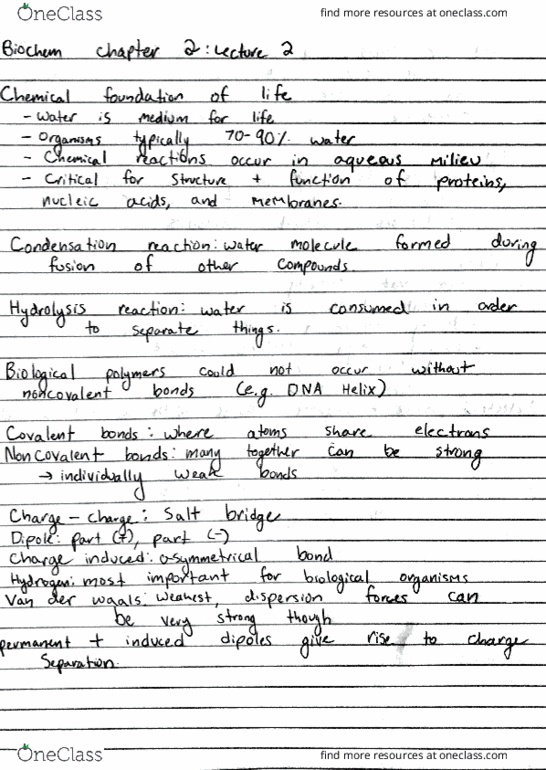 OneClass find more resources at oneclass.com
Biochem chapter 2: Lecture 2
Chemical foundation of life
- Water is medium for life
- Organisms typically 70-90% water
- Chemical reactions occur in aqueous milieu
- Critical for structure + function of proteins,
nucleic acids, and membranes.
Condensation reaction: water molecule formed during
fusion of other compounds.
Hydrolysis reaction: water is consumed in order
to separate things.
Biological polymers could not occur without
noncovalent bonds (e.g. DNA Helix)
Covalent bonds: where atoms share electrons
Non covalent bonds: many together can be strong
→ individually weak bonds
Charge - charge: Salt bridge
Dipole: part (+), part (-)
Charge induced: a-symmetrical bond
Hydrogen: most important for biological organisms
Van der waals: weakest, dispersion forces can
be very strong though
permanent + induced dipoles give rise to charge
separation.
OneClass find more resources at oneclass.com